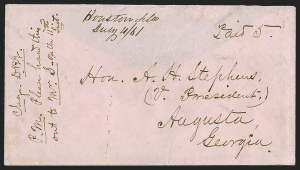 Houston, Fla
July 4/61
Paid 5.
Hon. A. H. Stephens,
(V. President.)
Augusta,
Georgia.
P.M. Please hand this
out to Mr.